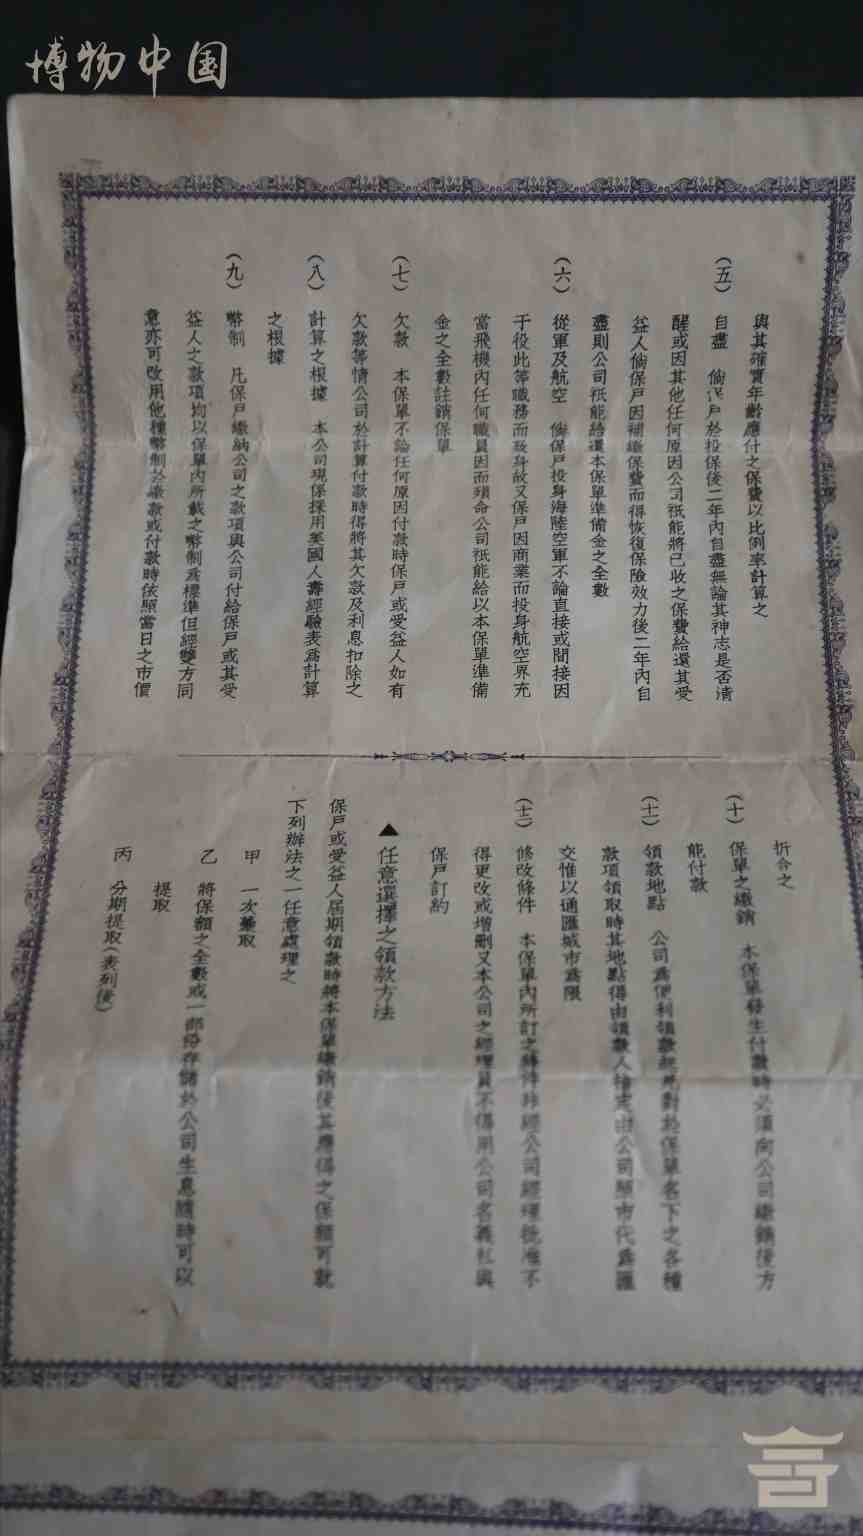 博物中国
與其確實年齡應付之保費以比例率計算之
(五) 自盡 倘保戶於投保後二年內自盡無論其神志是否清
醒或因其他任何原因公司祇能將已收之保費給還其受
益人倘保戶因補繳保費而得恢復保險效力後二年內自
盡則公司祇能給還本保單準備金之全數
(六) 從軍及航空 倘保戶投身海陸空軍不論直接或間接因
于役此等職務而致身故又保戶因商業而投身航空界充
當飛機內任何職員因而殞命公司祇能給以本保單準備
金之全數註銷保單
(七) 欠款 本保單不論任何原因付款時保戶或受益人如有
欠款等情公司於計算付款時得將其欠款及利息扣除之
(八) 計算之根據 本公司現係採用美國人壽經驗表為計算
之根據
(九) 幣制 凡保戶繳納公司之款項與公司付給保戶或其受
益人之款項均以保單內所載之幣制為標準但經雙方同
意亦可改用他種幣制於繳款或付款時依照當日之市價
折合之
(十) 保單之繳銷 本保單發生付款時必須向公司繳銷後方
能付款
(十一) 領款地點 公司為便利領款起見對於保單名下之各種
款項領取時其地點得由領款人指定由公司照市代為匯
交惟以通匯城市為限
(十二) 修改條件 本保單內所訂之條件非經公司總理批准不
得更改或增刪又本公司之經理員不得用公司名義私與
保戶訂約
▲任意選擇之領款方法
保戶或受益人屆期領款時將本保單繳銷後其應得之保額可就
下列辦法之一任意處理之
甲 一次兼取
乙 將保額之全數或一部份存儲於公司生息隨時可以
提取
丙 分期提取(表列後)